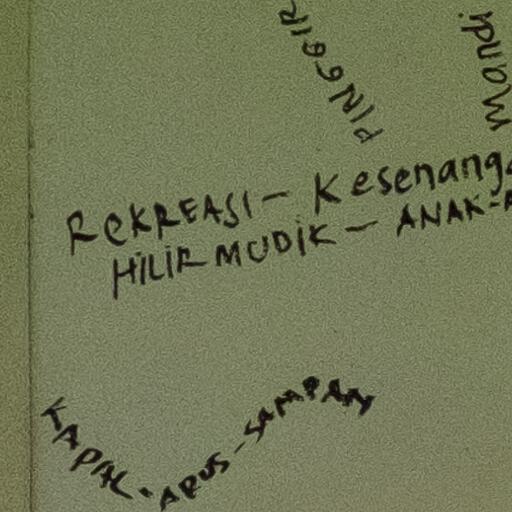 PINGGIR
Mandi
REKREASI – Kesenang
HILIR MUDIK – ANAK-A
KAPAL · ARUS – SAMPAN